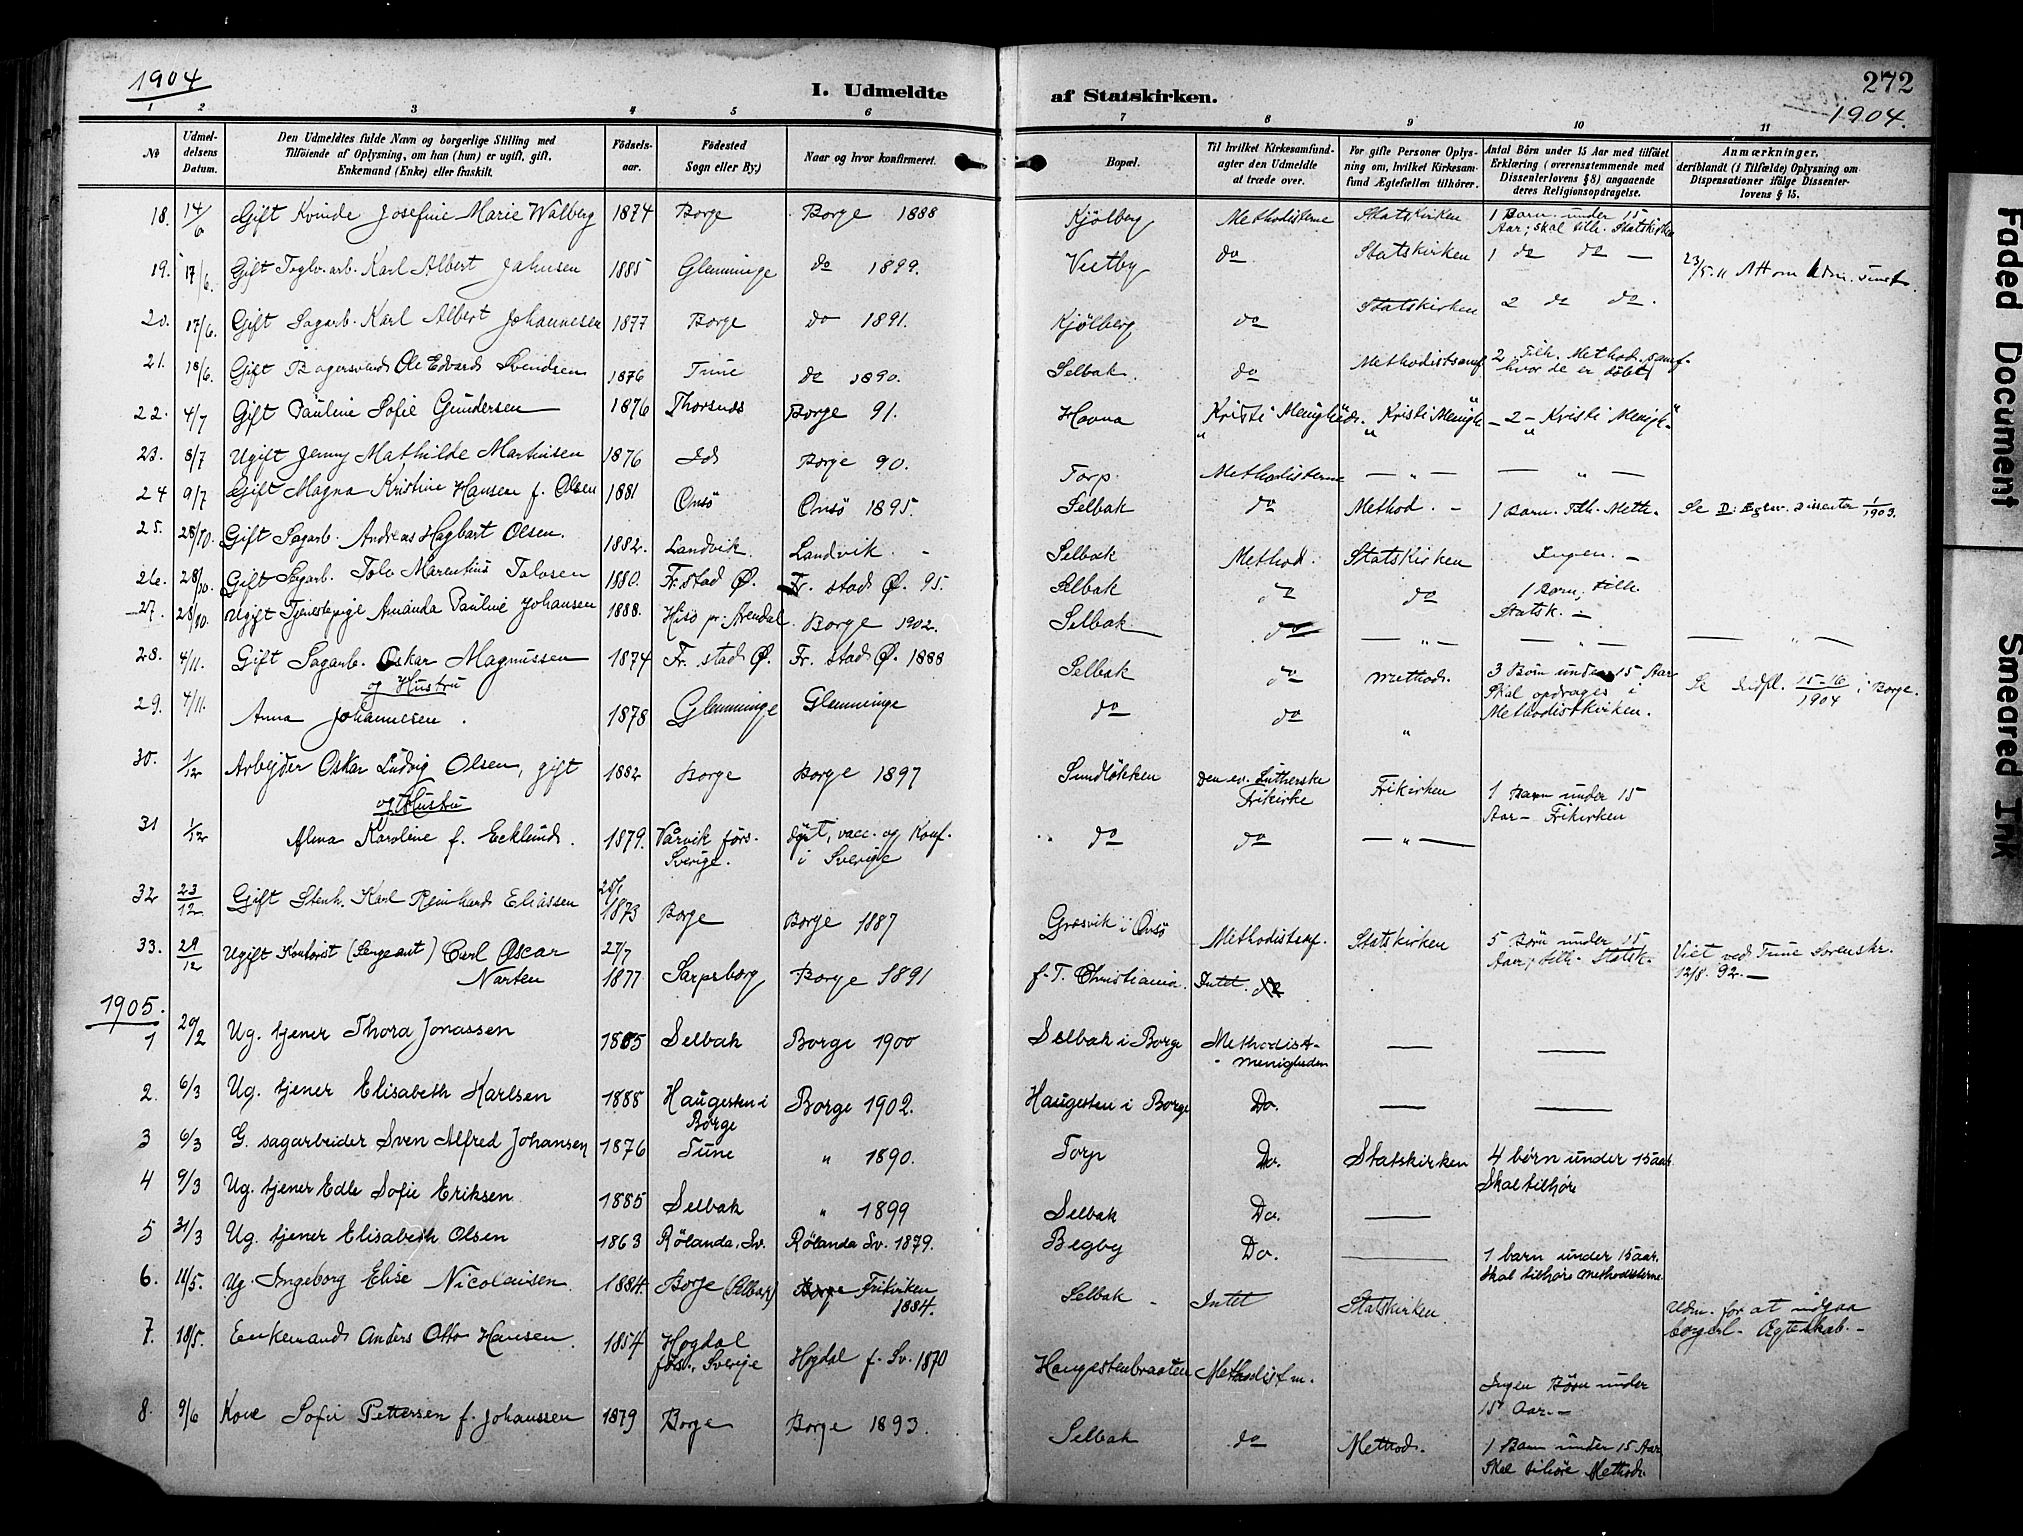 1904
I. Udmeldte af Statskirken.
272
1904.
1 2 3 4 5 6 7 8 9 10 11
No
Udmeldelsens Datum.
Den Udmeldtes fulde Navn og borgerlige Stilling med
Tilføiende af Oplysning, om han (hun) er ugift, gift.
Enkemand (Enke) eller fraskilt.
Fødselsaar.
Fødested
Sogn eller By.)
Naar og hvor konfirmeret.
Bopæl.
Til hvilket Kirkesamfund
agter den Udmeldte
at træde over.
For gifte Personer Oplysning om, hvilket Kirkesamfund Ægtefællen tilhører.
Antal Børn under 15 Aar med tilføiet
Erklæring (overensstemmende med
Dissenterlovens § 8) angaaende
deres Religionsopdragelse.
Anmærkninger,
deriblandt (i Tilfælde) Oplysning om
Dispensationer ifølge Dissenterlovens § 15.
18. 14/6 Gift Kvinde Josefine Marie Walberg 1874 Borge Borge 1888 Kjölberg Methodisterne Statskirken 1 Barn under 15
Aar; skal tilh. Statskirken
19. 17/6. Gift Teglv. arb. Karl Albert Jahnsen 1885 Glemminge do 1899. Vestby do Statskirken 1 do do — 23/5.11
20. 17/6. Gift Sagarb. Karl Albert Johannesen 1877 Borge do 1891. Kjölberg do Statskirken 2 do do.
21. 18/6. Gift Bagersvend Ole Edvard Svendsen 1876 Tune do 1890. Selbak. do Methodistsamf. 2 Tilh. Method. samf.
hvor de er døbt
22. 4/7 Gift Pauline Sofie Gundersen 1876 Thorsnes Borge 91. Havna "Kristi Menighed". "Kristi Menigh" – 2 – "Kristi Menigh."
23. 8/7 Ugift Jenny Mathilde Martinsen 1876 Id Borge 90. Torp. Methodisterne — " — — " —
24 9/7 Gift Magna Kristine Hansen f. Olsen 1881 Onsö Onsö 1895. Selbak do Method. – 1 Barn. Tilh. Meth. Se D. Egtev. Dissenter 1/1903.
25. 28/10. Gift Sagarb. Andreas Hagbart Olsen. 1882. Landvik. Landvik. – Selbak Method. Statskirken Ingen. –
26. 28/10. Gift Sagarb. Tolv Marentius Tolvsen 1880. Fr.stad Ø. Fr. stad Ø. 95. Selbak do do 1 Barn, tilh.
Statsk. –
27. 28/10. Ugift Tjenestepige Amanda Pauline Johansen 1888. Hisö pr. Arendal. Borge 1902. Selbak do — " — — " — — " —
28. 4/11. Gift Sagarb. Oskar Magnussen 1874 Fr. stad Ø. Fr. stad Ø. 1888 Selbak do Method. 3 Børn under 15 Aar
Skal opdrages i
Methodistkirken.
Se Indfl. 15-16/1904 i Borge.
og Hustru
29. 4/11. Anna Johannesen. 1878 Glemminge Glemminge do do "
30. 1/12 Arbejder Oskar Ludvig Olsen, gift 1882 Borge Borge 1897 Sundløkken Den ev. Lutherske
Frikirke Frikirken 1 Barn under 15
Aar – Frikirken
og Hustru
31 1/12 Alma Karoline f. Ecklund. 1879. Vårvik förs.
Sverige. døpt, vacc. og Konf.
i Sverige do do — " —
32 23/12 Gift Stenh. Karl Reinhard Eliassen 1873 Borge Borge 1887 Gresvik i Onsö Methodistsamf. Statskirken 5 Børn under 15
Aar, tilh. Statsk. Viet ved Tune Sorenskr.
12/8. 92. —
33. 29/12 Ugift Kontorist (Sergeant) Carl Oscar
Narten 27/7
1877 Sarpsborg Borge 1891 f. T. Christiania. Intet. do
1905.
1 20/2 Ug. tjener Thora Jonassen 1885 Selbak Borge 1900 Selbak i Borge Methodist-
menigheden — —
2. 6/3 Ug. tjener Elisabeth Karlsen 1888 Haugesten i
Borge Borge 1902. Haugesten i Borge Do. — —
3 6/3 G. sagarbeider Sven Alfred Johansen 1876 Tune " 1890. Torp Do. Statskirken 4 børn under 15 aar
Skal tilhøre
4 9/3 Ug. tjener Edle Sofie Eriksen 1885 Selbak " 1899 Selbak Do. —
5 31/3 Ug. tjener Elisabeth Olsen 1863 Rölanda, Sv. Rölanda Sv. 1879. Begby Do. — 1 barn under 15 aar.
Skal tilhøre Methodisterne
6. 11/5. Ug. Ingeborg Elise Nicolaisen. 1884. Borge (Selbak) Borge Frikirken
1884. Selbak – Intet Statskirken. Udm. for at indgaa
borgerl. Ægteskab. –
7. 18/5. Enkemand Anders Otto Hansen. 1854 Hogdal
förs., Sverige Hogdal f. Sv. 1870 Haugestenbraaten Methodist m. Ingen Børn under
15 Aar. –
8. 9/6 Kone Sofie Pettersen f. Johanssen 1879 Borge Borge 1893. Selbak do Method. 1 Barn under 15 Aar,
Skal tilhøre Method.
Faded Document
Smeared Ink